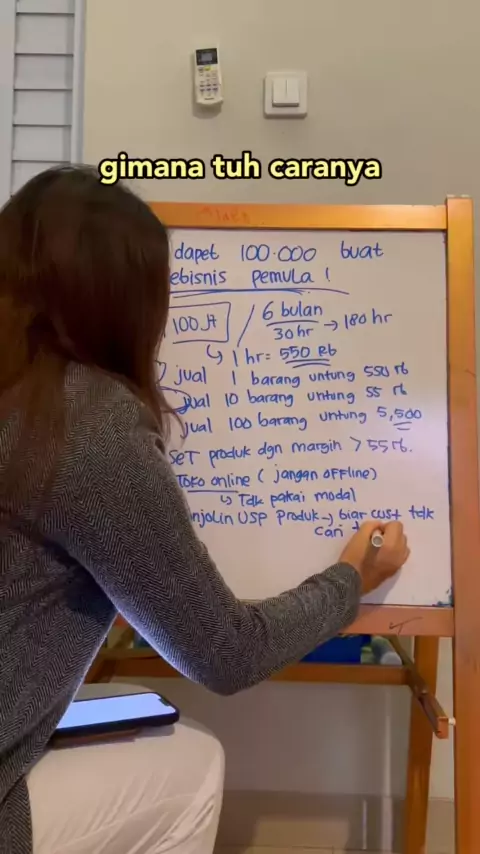 gimana tuh caranya
dapet 100.000 buat
ebisnis pemula !
100 Jt / 6 bulan → 180 hr
30 hr
↳ 1 hr = 550 Rb
jual 1 barang untung 550 rb
jual 10 barang untung 55 rb
jual 100 barang untung 5,500
SET produk dgn margin > 55 rb.
Toko online ( jangan OFFline)
↳ Tdk pakai modal
njolin USP Produk → biar cust tdk
cari